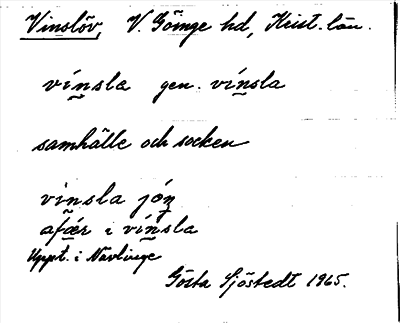 Vinslöv, V. Göinge hd, Krist. län.
vínsla gen. vínsla
samhälle och socken
vìnsla jón
afǽr i vínsla
Uppt. i Navlinge
Gösta Sjöstedt 1965.